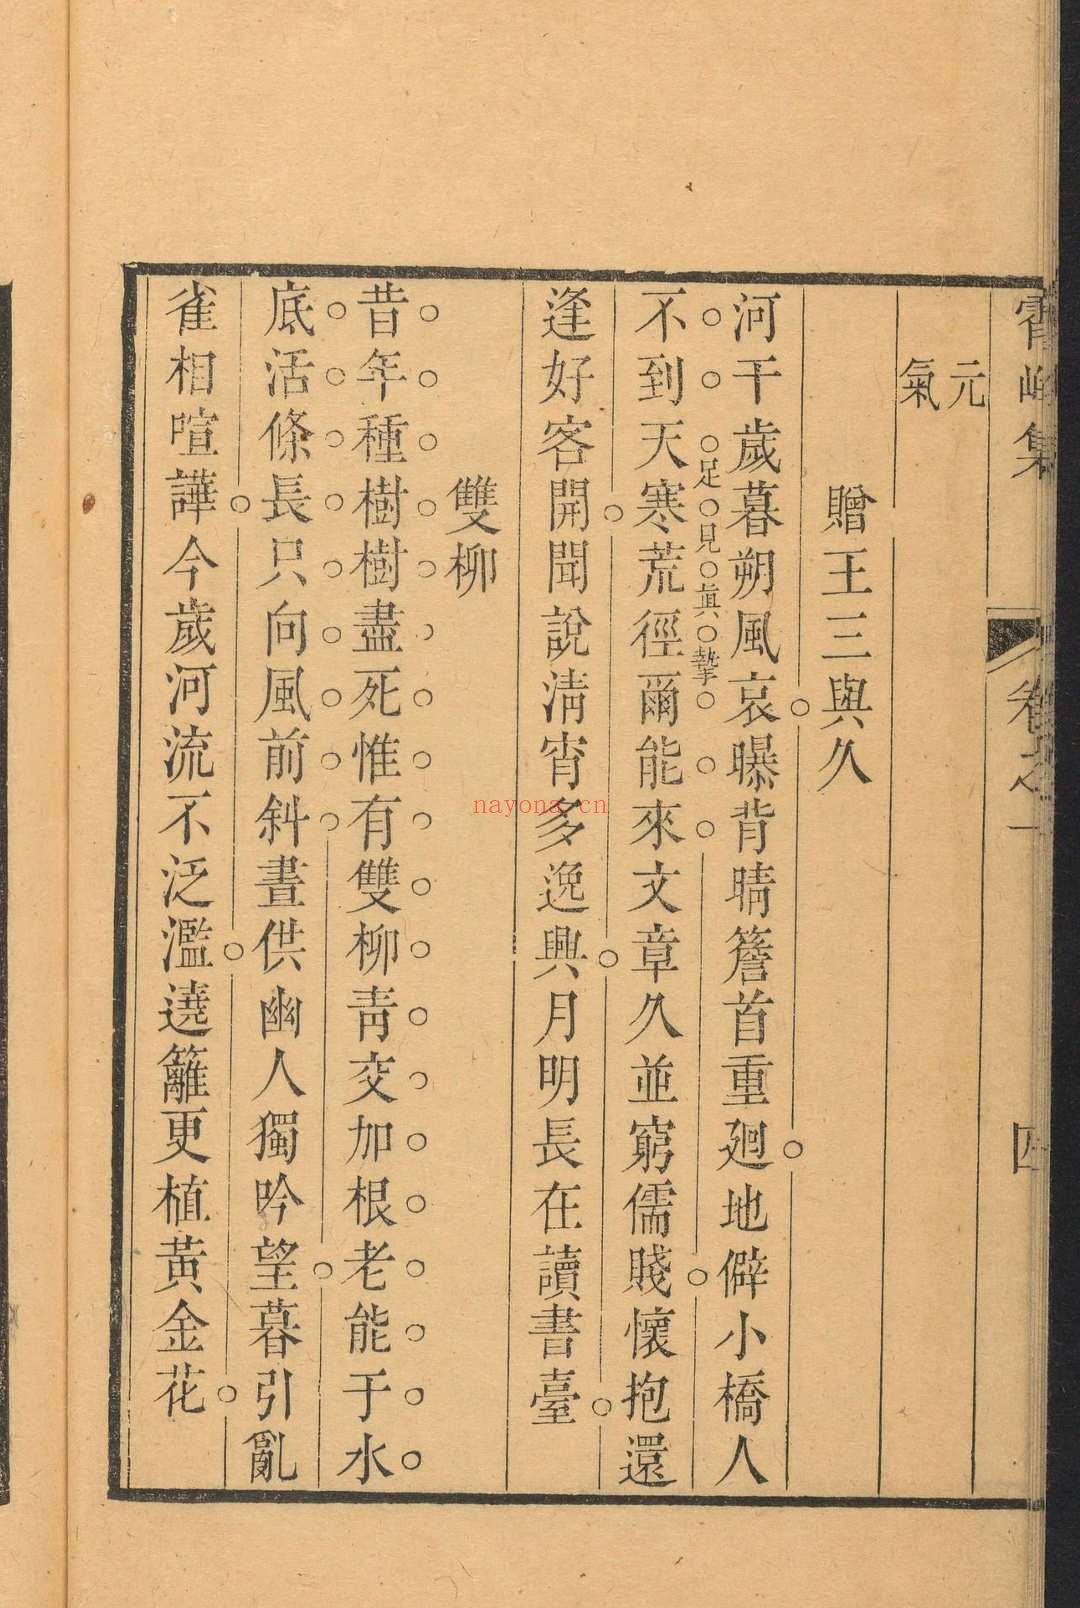 集
卷之一
四
元
氣
贈王三與久
河干歲暮朔風哀曝背晴簷首重廻地僻小橋人
足見眞摯
不到天寒荒徑爾能來文章久並窮儒賤懷抱還
逢好客開聞說淸宵多逸興月明長在讀書臺
雙柳
昔年種樹樹盡死惟有雙柳靑交加根老能于水
底活條長只向風前斜晝供幽人獨吟望暮引亂
雀相喧譁今歲河流不泛濫遶籬更植黃金花
nayona.cn